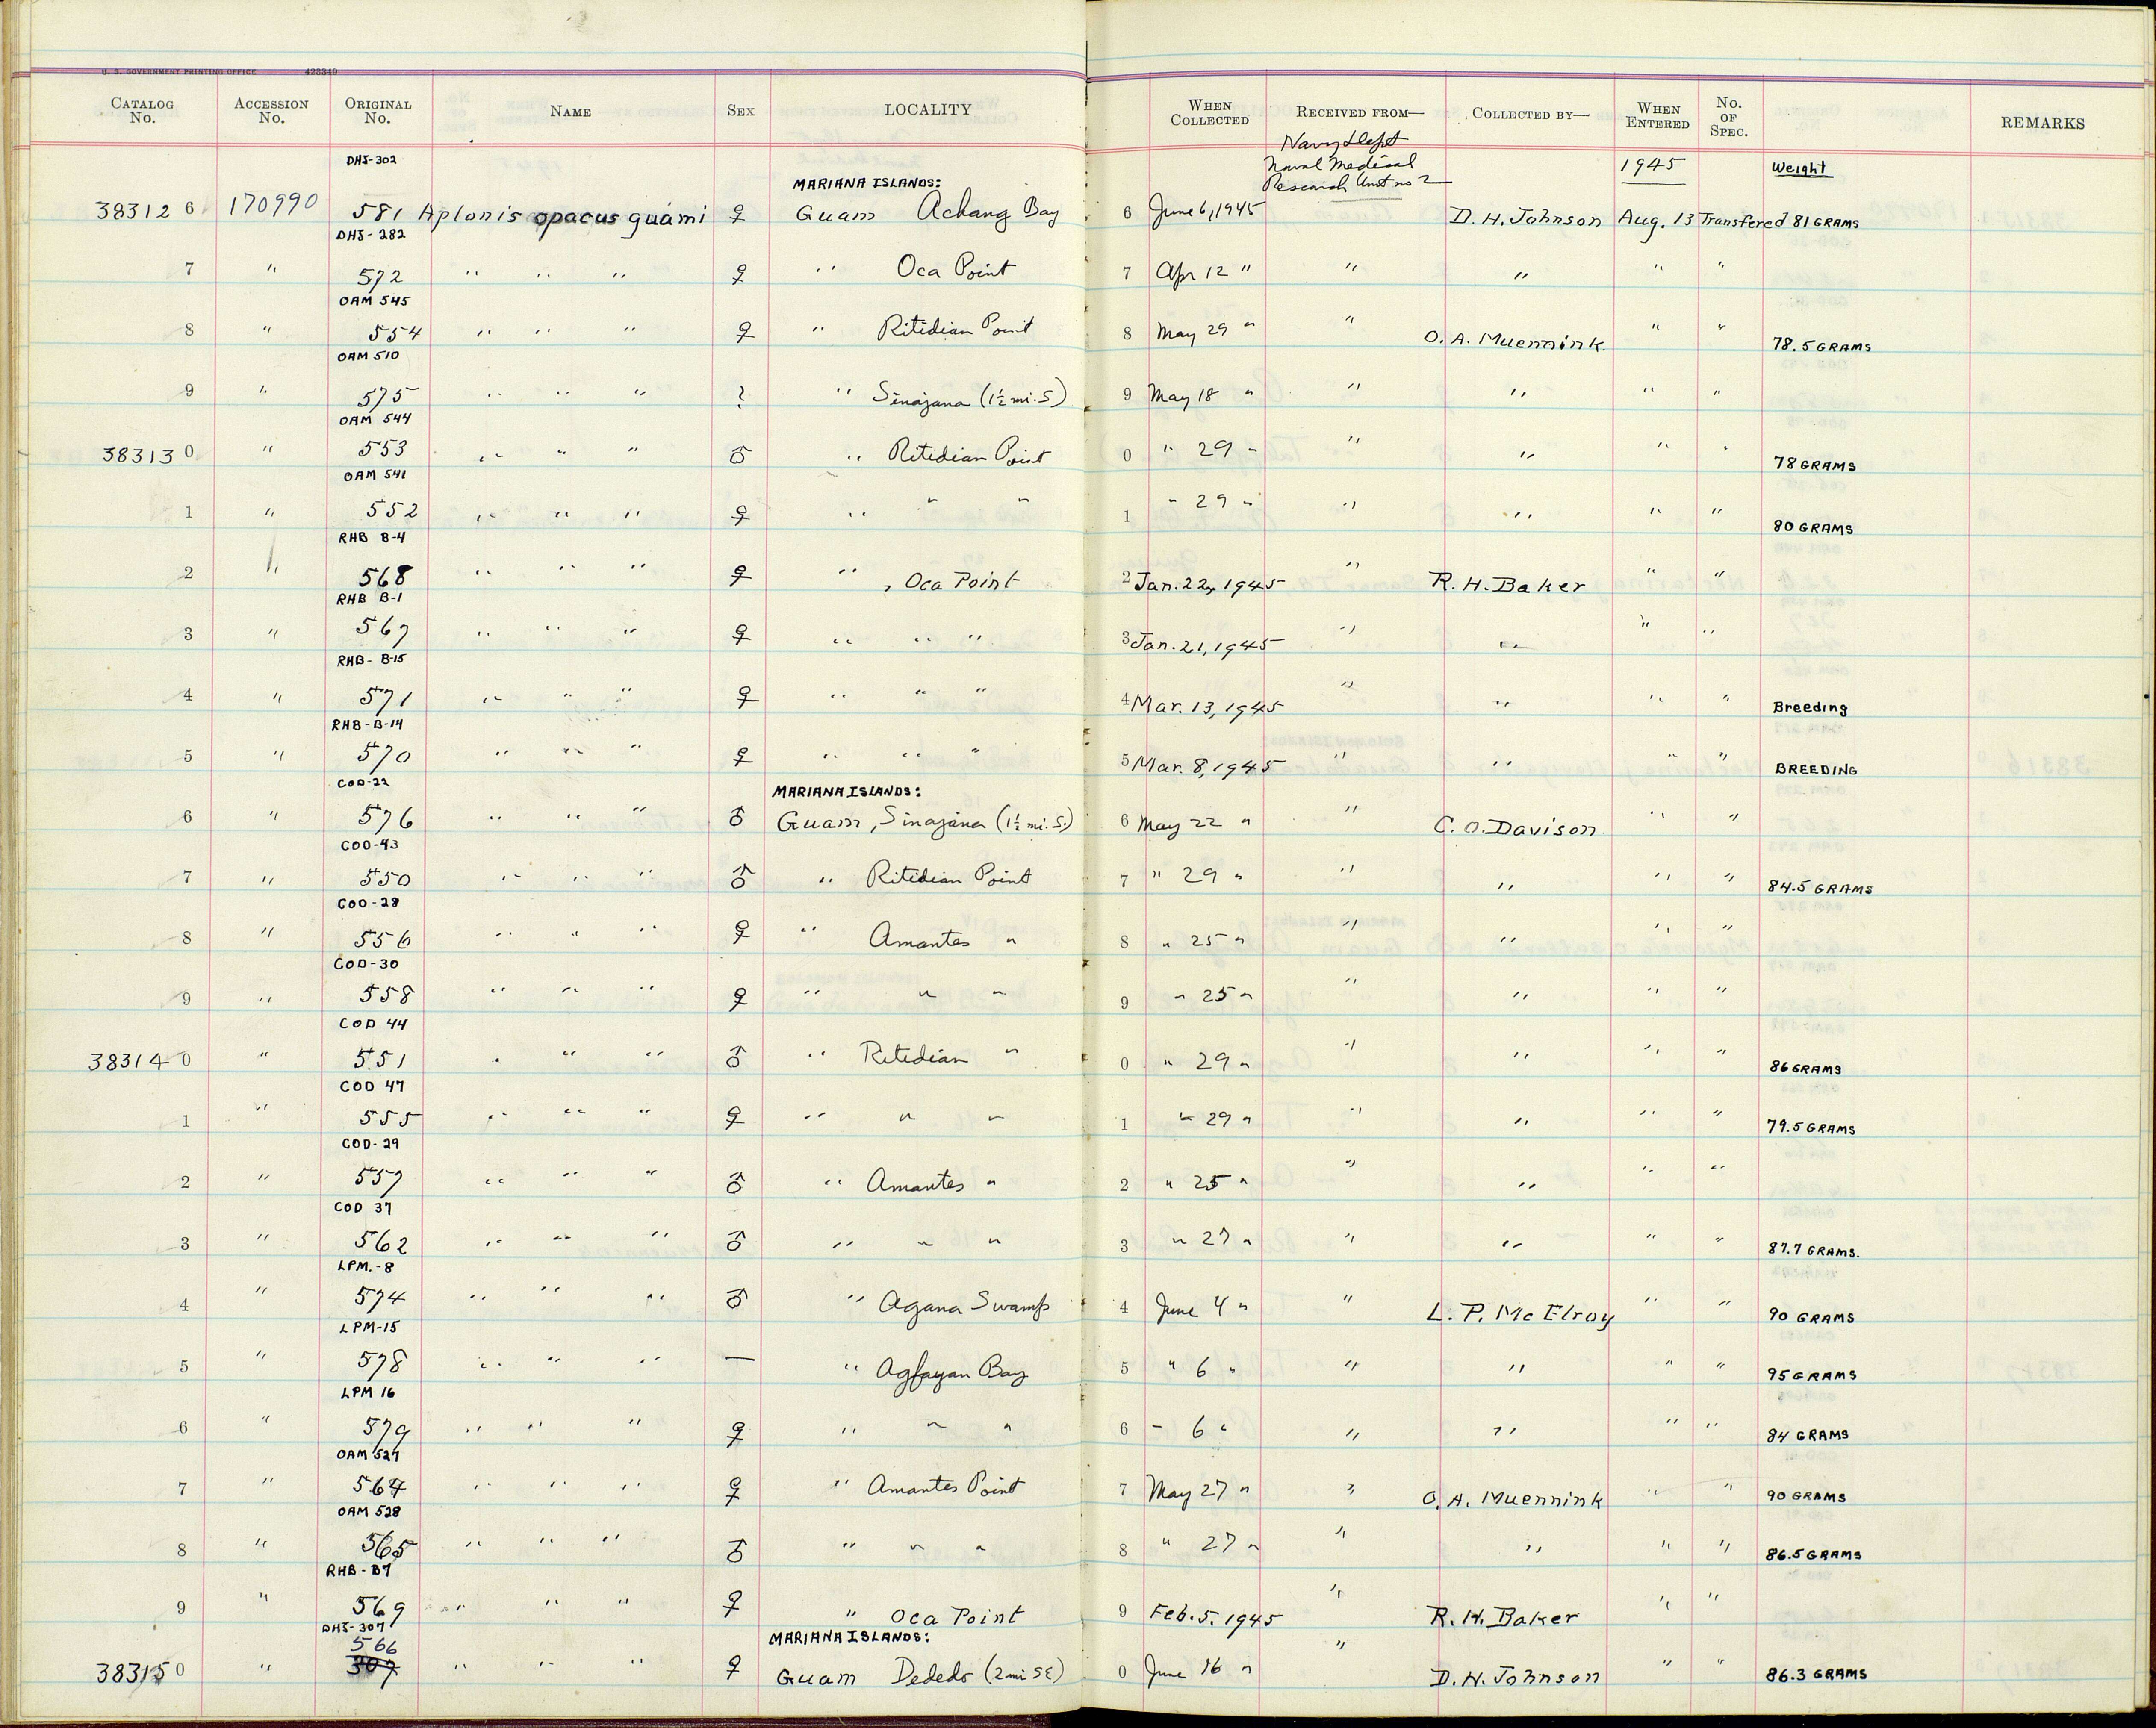 U. S. GOVERNMENT PRINTING OFFICE 423349
CATALOG No. ACCESSION No. ORIGINAL No. NAME SEX LOCALITY WHEN COLLECTED RECEIVED FROM— COLLECTED BY— WHEN ENTERED No. OF SPEC. REMARKS
Navy Dept
DHJ-302 Naval Medical 1945 Weight
MARIANA ISLANDS: Research Unit no 2
38312 6 170990 581 Aplonis opacus guami ♀ Guam Achang Bay 6 June 6, 1945 D. H. Johnson Aug. 13 Transfered 81 GRAMS
DHJ-282
7 " 572 " " " ♀ " Oca Point 7 Apr 12 " " " " "
OAM 545
8 " 554 " " " ♀ " Ritidian Point 8 May 29 " " O. A. Muennink " " 78.5 GRAMS
OAM 510
9 " 575 " " " ? " Sinajana (1½ mi. S) 9 May 18 " " " " "
OAM 544
38313 0 " 553 " " " ♂ " Ritidian Point 0 " 29 " " " " " 78 GRAMS
OAM 541
1 " 552 " " " ♀ " " " 1 " 29 " " " " " 80 GRAMS
RHB B-4
2 " 568 " " " ♀ " , Oca Point 2 Jan. 22, 1945 " R. H. Baker " "
RHB B-1
3 " 567 " " " ♀ " " " 3 Jan. 21, 1945 " " " "
RHB- B-15
4 " 571 " " " ♀ " " " 4 Mar. 13, 1945 " " " " Breeding
RHB-B-14
5 " 570 " " " ♀ " " " 5 Mar. 8, 1945 " " " " BREEDING
COD-22 MARIANA ISLANDS:
6 " 576 " " " ♂ Guam, Sinajana (1½ mi. S.) 6 May 22 " " C. O. Davison " "
COD-43
7 " 550 " " " ♂ " Ritidian Point 7 " 29 " " " " " 84.5 GRAMS
COD-28
8 " 556 " " " ♀ " Amantes " 8 " 25 " " " " "
COD-30
9 " 558 " " " ♀ " " " 9 " 25 " " " " "
COD 44
38314 0 " 551 " " " ♂ " Ritidian " 0 " 29 " " " " " 86 GRAMS
COD 47
1 " 555 " " " ♀ " " " 1 " 29 " " " " " 79.5 GRAMS
COD-29
2 " 557 " " " ♂ " Amantes " 2 " 25 " " " " "
COD 37
3 " 562 " " " ♂ " " " 3 " 27 " " " " " 87.7 GRAMS.
LPM.-8
4 " 574 " " " ♂ " Agana Swamp 4 June 4 " " L. P. McElroy " " 90 GRAMS
LPM-15
5 " 578 " " " — " Agfayan Bay 5 " 6 " " " " " 95 GRAMS
LPM 16
6 " 579 " " " ♀ " " " 6 " 6 " " " " " 84 GRAMS
OAM 527
7 " 564 " " " ♀ " Amantes Point 7 May 27 " " O. A. Muennink " " 90 GRAMS
OAM 528
8 " 565 " " " ♂ " " " 8 " 27 " " " " " 86.5 GRAMS
RHB-B7
9 " 569 " " " ♀ " Oca Point 9 Feb. 5. 1945 " R. H. Baker " "
DHJ-307 MARIANA ISLANDS:
566
38315 0 " 307 " " " ♀ Guam Dededo (2 mi SE) 0 June 16 " " D. H. Johnson " " 86.3 GRAMS